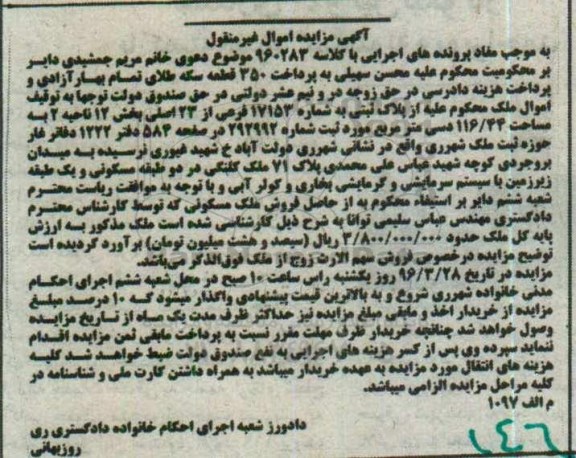 آگهی مزایده اموال غیرمنقول
به موجب مفاد پرونده های اجرایی با کلاسه ۹۶۰۲۸۳ موضوع دعوی خانم مریم جمشیدی دایر
بر محکومیت محکوم علیه محسن سهیلی به پرداخت ۳۵۰ قطعه سکه طلای تمام بهار آزادی و
پرداخت هزینه دادرسی در حق زوجه در و نیم عشر دولتی در حق صندوق دولت توجها به توقیف
اموال ملک محکوم علیه از پلاک ثبتی به شماره ۱۷۱۵۳ فرعی از ۲۳ اصلی بخش ۱۲ ناحیه ۲ به
مساحت ۱۱۶/۴۴ دسی متر مربع مورد ثبت شماره ۲۹۲۹۹۲ در صفحه ۵۸۴ دفتر ۱۲۲۲ دفاتر غار
حوزه ثبت ملک شهرری واقع در نشانی شهرری دولت آباد خ شهید غیوری نرسیده به میدان
بروجردی کوچه شهید عباس علی محمدی پلاک ۷۱ ملک کلنگی در دو طبقه مسکونی و یک طبقه
زیرزمین با سیستم سرمایشی و گرمایشی بخاری و کولر آبی و با توجه به موافقت ریاست محترم
شعبه ششم دایر بر استیفاء محکوم به از حاصل فروش ملک مسکونی که توسط کارشناس محترم
دادگستری مهندس عباس سلیمی توانا به شرح ذیل کارشناسی شده است ملک مذکور به ارزش
پایه کل ملک حدود ۳/۸۰۰/۰۰۰/۰۰۰ ریال (سیصد و هشت میلیون تومان) برآورد گردیده است
توضیح مزایده درخصوص فروش سهم الارث زوج از ملک فوق الذکر می‌باشد.
مزایده در تاریخ ۹۶/۳/۲۸ روز یکشنبه راس ساعت ۱۰ صبح در محل شعبه ششم اجرای احکام
مدنی خانواده شهرری شروع و به بالاترین قیمت پیشنهادی واگذار میشود که ۱۰ درصد مبلغ
مزایده از خریدار اخذ و مابقی مبلغ مزایده نیز حداکثر ظرف مدت یک ماه از تاریخ مزایده
وصول خواهد شد چنانچه خریدار ظرف مهلت مقرر نسبت به پرداخت مابقی ثمن مزایده اقدام
ننماید سپرده وی پس از کسر هزینه های اجرایی به نفع صندوق دولت ضبط خواهد شد کلیه
هزینه های انتقال مورد مزایده به عهده خریدار میباشد به همراه داشتن کارت ملی و شناسنامه در
کلیه مراحل مزایده الزامی میباشد.
م الف ۱۰۹۷
دادورز شعبه اجرای احکام خانواده دادگستری ری
روزبهانی
۱۴۶